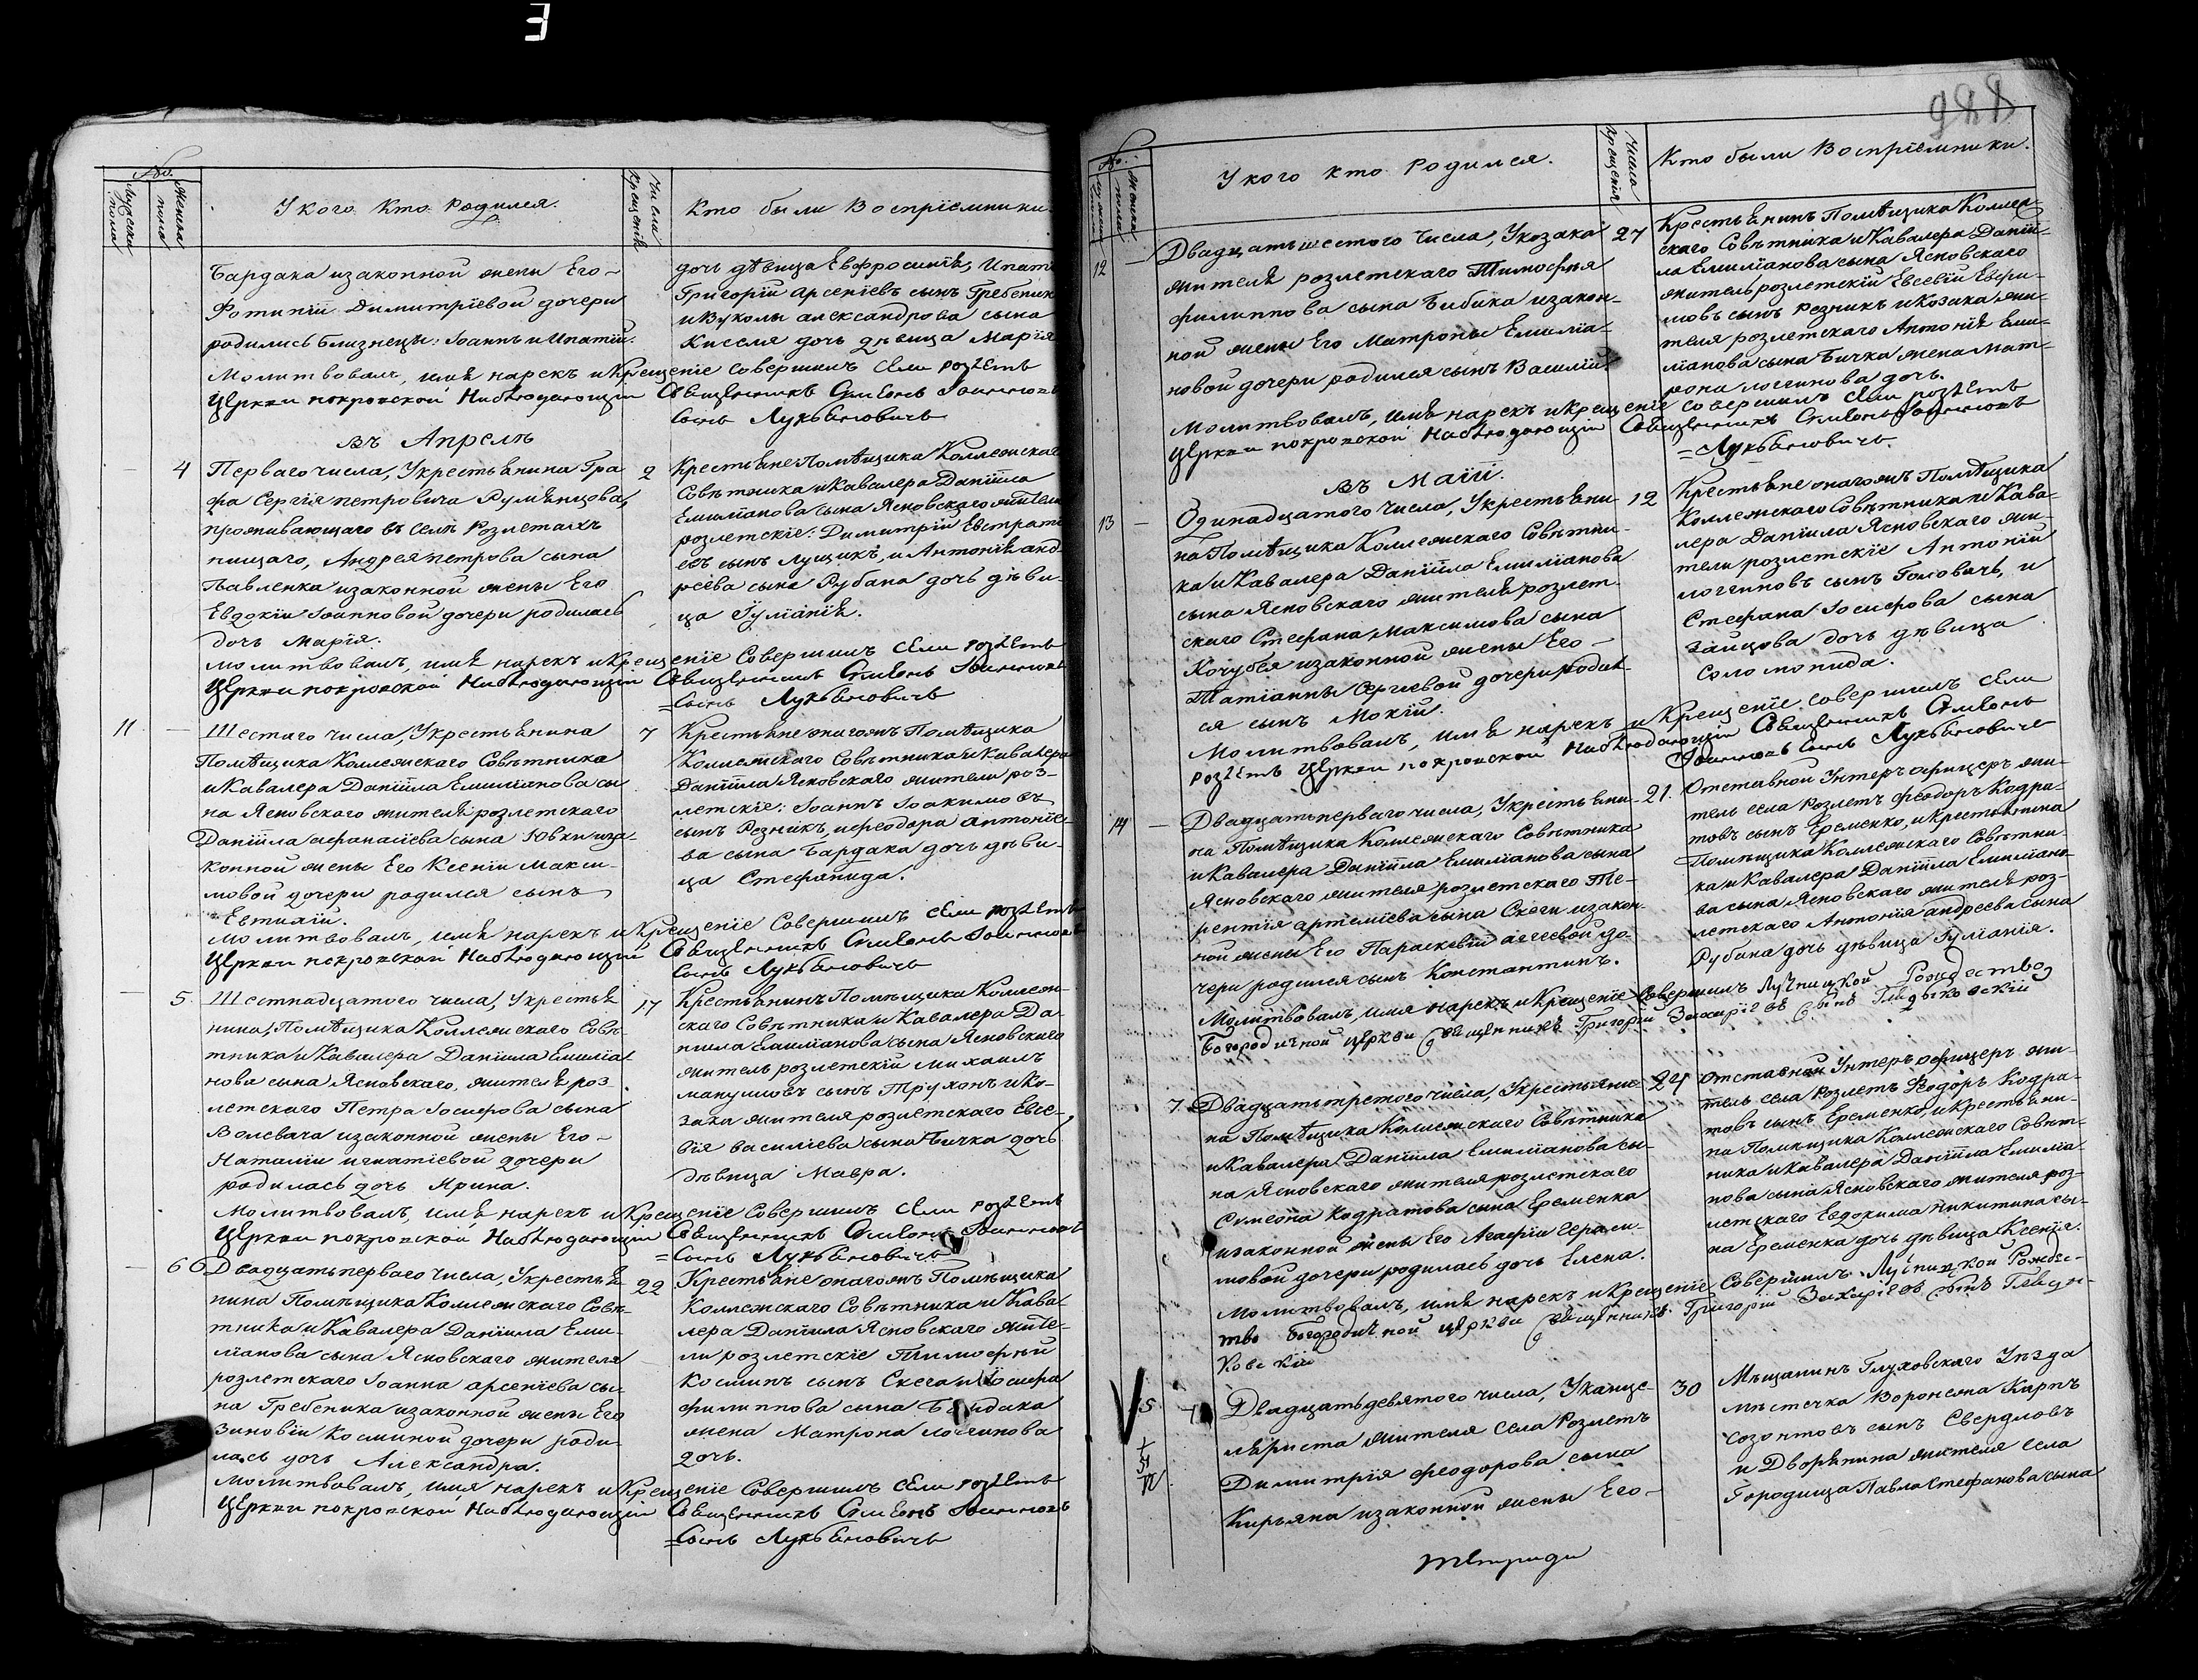 No.
Мужеска пола
Женска пола
У кого кто родился.
Числа крещенія
Кто были Воспріемники
Бардака изаконной жены Его
Фотиніи Димитріевой дочери
родились близнецы: Іоаннъ и Ипатій.
дочь дѣвица Евфросинія, Ипатія
Григорій Арсеніевъ сынъ Гребеник
и Вуколы александрова сына
Киселя дочь дѣвица Марія
Молитвовалъ, имя нарекъ и Крещеніе совершилъ села розлетъ
Церкви покровской Наблюдающій Священникъ Симеонъ Іоанновъ
Сынъ Лукьяновичь
въ Апрелѣ
4
Перваго числа, Укрестьянина Гра
фа Сергія петровича Румянцова,
проживающаго въ селѣ Розлетахъ
нищаго, Андрея петрова сына
Павленка изаконной жены Его
Евдокіи Іоанновой дочери родилась
дочь Марія.
2
Крестьяне Помѣщика Коллежскаго
Совѣтника и Кавалера Даніила
Емиліанова сына Ясновскаго жители
розлетскіе: Димитрій Евстраті
евъ сынъ Лущикъ, и Антонія анд
реева сына Рубана дочь дѣви-
ца Іуліанія.
Молитвовалъ, имя нарекъ и Крещеніе Совершилъ Села розлетъ
Церкви покровской Наблюдающій Священникъ Симеонъ Іоанновъ
=Сынъ Лукьяновичь
11
Шестаго числа, Укрестьянина
Помѣщика Коллежскаго Совѣтника
и Кавалера Даніила Емиліанова сы
на Ясновскаго жителя розлетскаго
Даніила афанасіева сына Ювки иза-
конной жены Его Ксеніи Макси-
мовой дочери родился сынъ
Евтихій.
7
Крестьяне онагожъ Помѣщика
Коллежскаго Совѣтника и Кавалера
Даніила Ясновскаго жители роз-
летскіе: Іоаннъ Іоакимовъ
сынъ Резникъ, и феодора антоніе-
ва сына Бардака дочь дѣви-
ца Стефанида.
Молитвовалъ, имя нарекъ и Крещеніе Совершилъ Села розлетъ
Церкви покровской Наблюдающій Священникъ Симеонъ Іоанновъ
Сынъ Лукьяновичь
5
Шестнадцатого числа, Укрестья
нина Помѣщика Коллежскаго Совѣ-
тника и Кавалера Даніила Емиліа
нова сына Ясновскаго, жителя роз-
летскаго Петра Іосифова сына
Волевача изаконной жены Его
Наталіи игнатіевой дочери
родилась дочь Ирина.
17
Крестьянинъ Помѣщика Коллеж-
скаго Совѣтника и Кавалера Да-
ніила Емиліанова сына Ясновскаго
житель розлетскій Михаилъ
мануиловъ сынъ Трухонъ и Ко-
зака жителя розлетскаго Евсе-
вія василіева сына Бичка дочь
дѣвица Мавра.
Молитвовалъ, имя нарекъ и Крещеніе Совершилъ Села розлетъ
Церкви покровской Наблюдающій Священникъ Симеонъ Іоанновъ
=Сынъ Лукьяновичь
6
Двадцать перваго числа, Укрестья
нина Помѣщика Коллежскаго Совѣ-
тника и Кавалера Даніила Еми-
ліанова сына Ясновскаго жителя
розлетскаго Іоанна арсеніева сы-
на Гребеника изаконной жены Его
Зиновіи Косминой дочери роди-
лась дочь Александра.
22
Крестьяне онагожъ Помѣщика
Коллежскаго Совѣтника и Кава-
лера Даніила Ясновскаго жите-
ли розлетскіе Тимофей
Косминъ сынъ Скега и Іосифа
филиппова сына
жена Матрона логгинова
дочь.
Молитвовалъ, имя нарекъ и Крещеніе Совершилъ Села розлетъ
Церкви покровской Наблюдающій Священникъ Симеонъ Іоанновъ
=Сынъ Лукьяновичь
No.
У кого кто Родился.
Числа крещенія
Кто были Воспріемники.
12
Двадцать шестого Числа, Укозака
жителя розлетскаго Тимофея
филиппова сына Бибика изакон-
ной жены Его Матроны Емиліа-
новой дочери родился сынъ Василій.
27
Крестьянинъ Помѣщика Коллеж-
скаго Совѣтника и Кавалера Даніи-
ла Емиліанова сына Ясновскаго
житель розлетскій Евсевій Ефи-
мовъ сынъ Резникъ и Козака жи-
теля розлетскаго Антонія Еми-
ліанова сына Бичка жена Мат-
рона логгинова дочь.
Молитвовалъ, имя нарекъ и Крещеніе совершилъ Села розлетъ
Церкви покровской Наблюдающій Священникъ Симеонъ Іоанновъ
=Лукьяновичь.
въ Маіи.
13
Одинадцатого числа, Укрестьяни
на Помѣщика Коллежскаго Совѣтни-
ка и Кавалера Даніила Емиліанова
сына Ясновскаго жителя розлет-
скаго Стефана Максимова сына
Кочубея изаконной жены Его
Татіанны Сергіевой дочери родил-
ся сынъ Мокій.
12
Крестьяне онагожъ Помѣщика
Коллежскаго Совѣтника и Кава-
лера Даніила Ясновскаго жи-
тели розлетскіе Антоній
логгиновъ сынъ Головачь, и
Стефана Іосифова сына
Зайцова дочь дѣвица
Соломонида.
Молитвовалъ, имя нарекъ и Крещеніе совершилъ Села
розлетъ Церкви покровской Наблюдающій Священникъ Симеонъ
Іоанновъ Сынъ Лукьяновичь
14
Двадцать перваго числа, Укрестьяни-
на Помѣщика Коллежскаго Совѣтника
и Кавалера Даніила Емиліанова сына
Ясновскаго жителя розлетскаго Те-
рентія артеміева сына Скеги изакон-
ной жены Его Параскевіи аггеевой до-
чери родился сынъ Константинъ.
21.
Отставной Унтеръ афицеръ жи-
тель села Розлетъ феодоръ Кодра-
товъ сынъ Еременко, и Крестьянина
Помѣщика Коллежскаго Совѣтни-
ка и Кавалера Даніила Емиліано-
ва сына Ясновскаго жителя роз-
летскаго Антонія андреева сына
Рубана дочь дѣвица Іуліанія.
Молитвовалъ, имя нарекъ и Крещеніе Совершилъ Рождество
Богородичной церкви Священникъ Григорій Захаріевъ Сынъ
7
Двадцать третого числа, Укрестьяни
на Помѣщика Коллежскаго Совѣтника
и Кавалера Даніила Емиліанова сы-
на Ясновскаго жителя розлетскаго
Симеона Кодратова сына Еременка
изаконной жены Его Агафіи Гераси-
мовой дочери родилась дочь Елена.
24
Отставной Унтеръ офицеръ жи-
тель села Розлетъ Феодоръ Кодра-
товъ сынъ Еременко, и Крестьяни-
на Помѣщика Коллежскаго Совѣт-
ника и Кавалера Даніила Емилiа-
нова сына Ясновскаго жителя роз-
летскаго Евдокима никитина сы-
на Еременка дочь дѣвица Ксенія.
Молитвовалъ, имя нарекъ и Крещеніе Совершилъ Рождес-
тво Богородичной церкви Священникъ Григорій Захаріевъ сынъ
15
Двадцать девятого числа, Уканце-
ляриста жителя села Розлетъ
Димитрія феодорова сына
Кирьяна изаконной жены Его
30
Мѣщанинъ Глуховскаго Уѣзда
мѣстечка Воронежа Карпъ
созонтовъ сынъ Свердловъ
и Дворянина жителя села
Городища Павла Стефанова сына